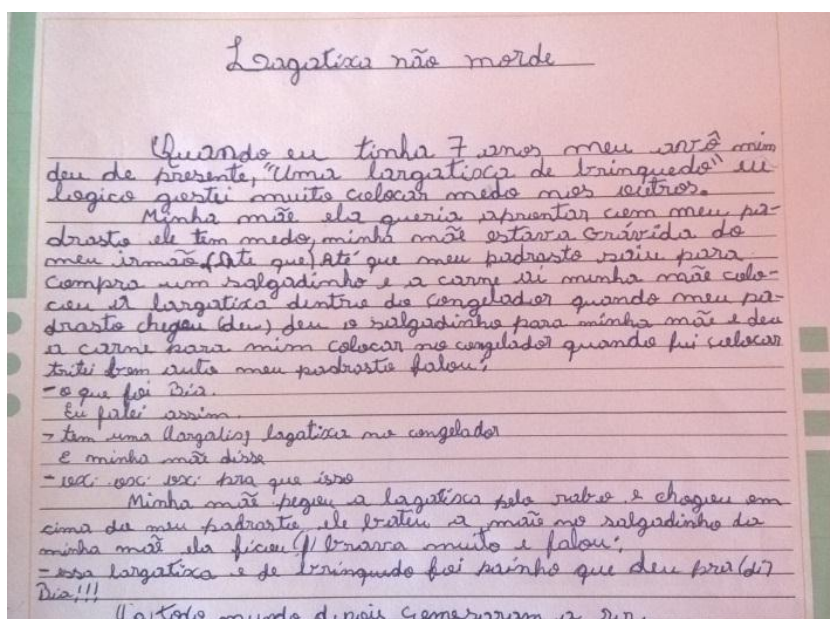 Lagatixa não morde
Quando eu tinha 7 anos meu avô mim
deu de presente, "Uma largatixa de brinquedo" eu
logico gostei muito colocar medo nos outros.
Minha mãe ela queria aprontar com meu pa-
drasto ele tem medo, minha mãe estava Grávida do
meu irmão (Ate que) Até que meu padrasto saiu para
compra um salgadinho e a carne ai minha mãe colo-
cou a largatixa dentro do congelador quando meu pa-
drasto chegou (deu) deu o salgadinho para minha mãe e deu
a carne para mim colocar no congelador quando fui colocar
tritei bem auto meu padrasto falou:
-o que foi Bia.
Eu falei assim.
- tem uma (largatis) lagatixa no congelador
e minha mãe disse
- oxi oxi oxi pra que isso
Minha mãe pegou a lagatixa pelo rabo e chogou em
cima do meu padrasto ele bateu a mão no salgadinho da
minha mãe ela ficou brava muito e falou:
- essa largatixa e de brinquedo foi painho que deu pra (di)
Bia!!!
todo mundo depois começaram a rir.